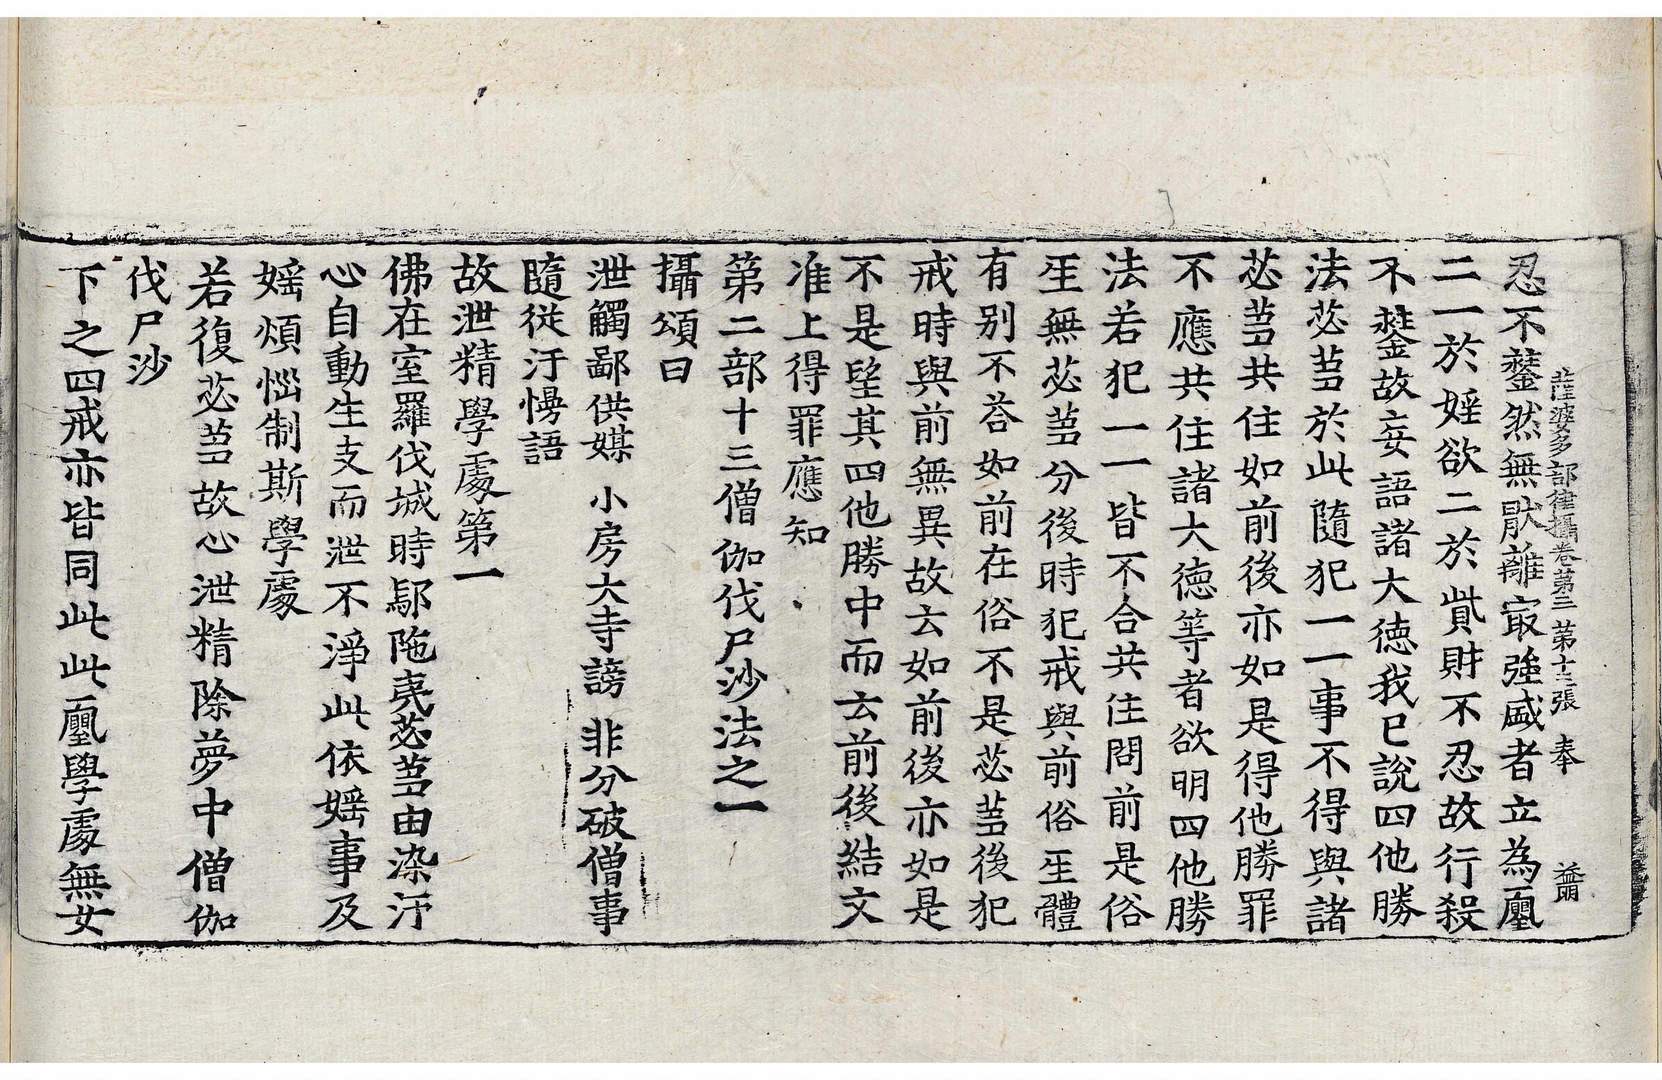 薩婆多部律攝卷第三　第十三張　奉　益爾
忍不鏊然無猒離㝡強盛者立為凰
二一於婬欲二於貲財不忍故行殺
不鏊故妄語諸大德我已說四他勝
法苾蒭於此隨犯一一事不得與諸
苾蒭共住如前後亦如是得他勝罪
不應共住諸大德等者欲明四他勝
法若犯一一皆不合共住問前是俗
生無苾蒭分後時犯戒與前俗生體
有別不荅如前在俗不是苾蒭後犯
戒時與前無異故云如前後亦如是
不是望其四他勝中而云前後結文
准上得罪應知
第二部十三僧伽伐尸沙法之一
攝頌曰
泄觸鄙供媒　小房大寺謗　非分破僧事
隨從汙慢語
故泄精學處第一
佛在室羅伐城時鄔陁夷苾蒭由染汙
心自動生支而泄不淨此依婬事及
婬煩惱制斯學處
若復苾蒭故心泄精除夢中僧伽
伐尸沙
下之四戒亦皆同此此凰學處無女